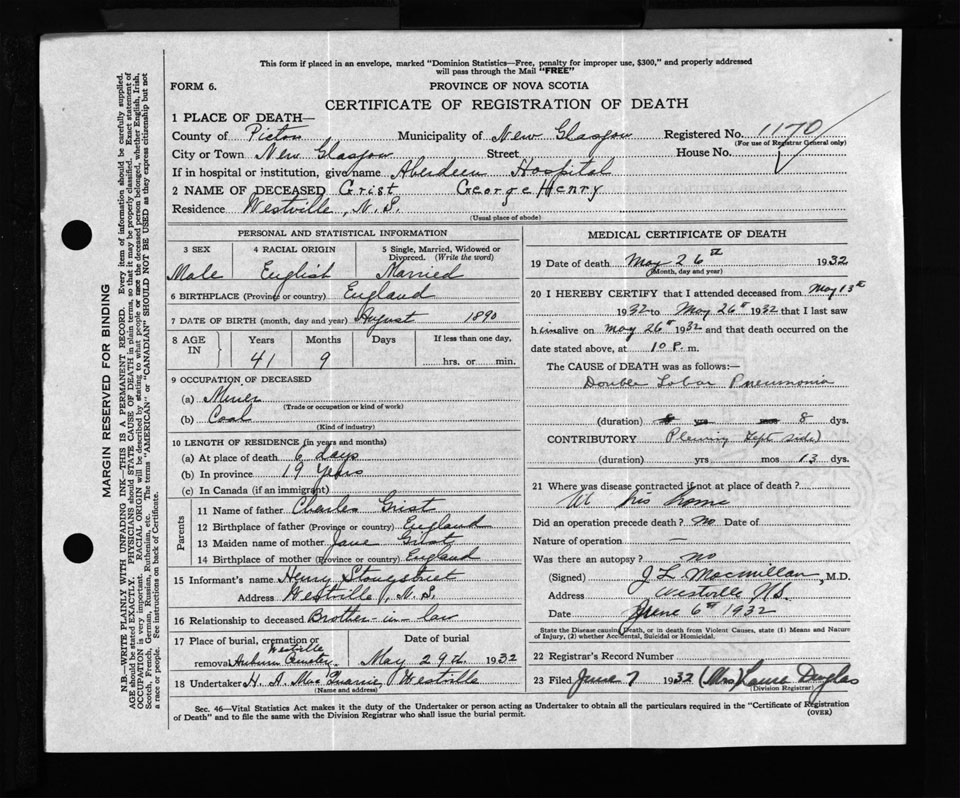 This form if placed in an envelope, marked "Dominion Statistics—Free, penalty for improper use, $300," and properly addressed
will pass through the Mail "FREE"
FORM 6.
PROVINCE OF NOVA SCOTIA
CERTIFICATE OF REGISTRATION OF DEATH
1 PLACE OF DEATH—
County of Pictou Municipality of New Glasgow Registered No. 1170
(For use of Registrar General only)
City or Town New Glasgow Street House No.
If in hospital or institution, give name Aberdeen Hospital
2 NAME OF DECEASED Grist George Henry
Residence Westville, N.S.
(Usual place of abode)
PERSONAL AND STATISTICAL INFORMATION
3 SEX 4 RACIAL ORIGIN 5 Single, Married, Widowed or Divorced. (Write the word)
Male English Married
6 BIRTHPLACE (Province or country) England
7 DATE OF BIRTH (month, day and year) August 1890
8 AGE IN Years Months Days If less than one day,
41 9 hrs. or min.
9 OCCUPATION OF DECEASED
(a) Miner
(Trade or occupation or kind of work)
(b) Coal
(Kind of industry)
10 LENGTH OF RESIDENCE (in years and months)
(a) At place of death 6 days
(b) In province 19 years
(c) In Canada (if an immigrant)
Parents
11 Name of father Charles Grist
12 Birthplace of father (Province or country) England
13 Maiden name of mother Jane Grist
14 Birthplace of mother (Province or country) England
15 Informant's name Henry
Address Westville, N.S.
16 Relationship to deceased Brother-in-law
17 Place of burial, cremation or removal Westville Auburn Cemeter. Date of burial May 29th 1932
18 Undertaker H. A. MacQuarrie, Westville
(Name and address)
MEDICAL CERTIFICATE OF DEATH
19 Date of death May 26th 1932
(Month, day and year)
20 I HEREBY CERTIFY that I attended deceased from May 13th
1932 to May 26th 1932 that I last saw
him alive on May 26th 1932 and that death occurred on
date stated above, at 10 P. m.
The CAUSE of DEATH was as follows:—
Double Lobar Pneumonia
(duration) yrs mos 8 dys.
CONTRIBUTORY Pleurisy left side)
(duration) yrs mos 13 dys.
21 Where was disease contracted if not at place of death?
At his home
Did an operation precede death? No Date of
Nature of operation —
Was there an autopsy? no
(Signed) J L Macmillan, M.D.
Address Westville N.S.
Date June 6th 1932
State the Disease causing Death, or in death from Violent Causes, state (1) Means and Nature
of Injury, (2) whether Accidental, Suicidal or Homicidal.
22 Registrar's Record Number
23 Filed June 7 1932 (Mrs) Laura Douglas
(Division Registrar)
Sec. 46—Vital Statistics Act makes it the duty of the Undertaker or person acting as Undertaker to obtain all the particulars required in the "Certificate of Registration
of Death" and to file the same with the Division Registrar who shall issue the burial permit.
(OVER)
MARGIN RESERVED FOR BINDING
N.B.—WRITE PLAINLY WITH UNFADING INK—THIS IS A PERMANENT RECORD. Every item of information should be carefully supplied.
AGE should be stated EXACTLY. PHYSICIANS should STATE CAUSE OF DEATH in plain terms, so that it may be properly classified. Exact statement of
OCCUPATION is very important. RACIAL ORIGIN will be described by stating to what people or race the deceased person belonged, whether English, Irish,
Scotch, French, German, Russian, Ruthenian, etc. The terms "AMERICAN" or "CANADIAN" SHOULD NOT BE USED as they express citizenship but not
a race or people. See instructions on back of Certificate.